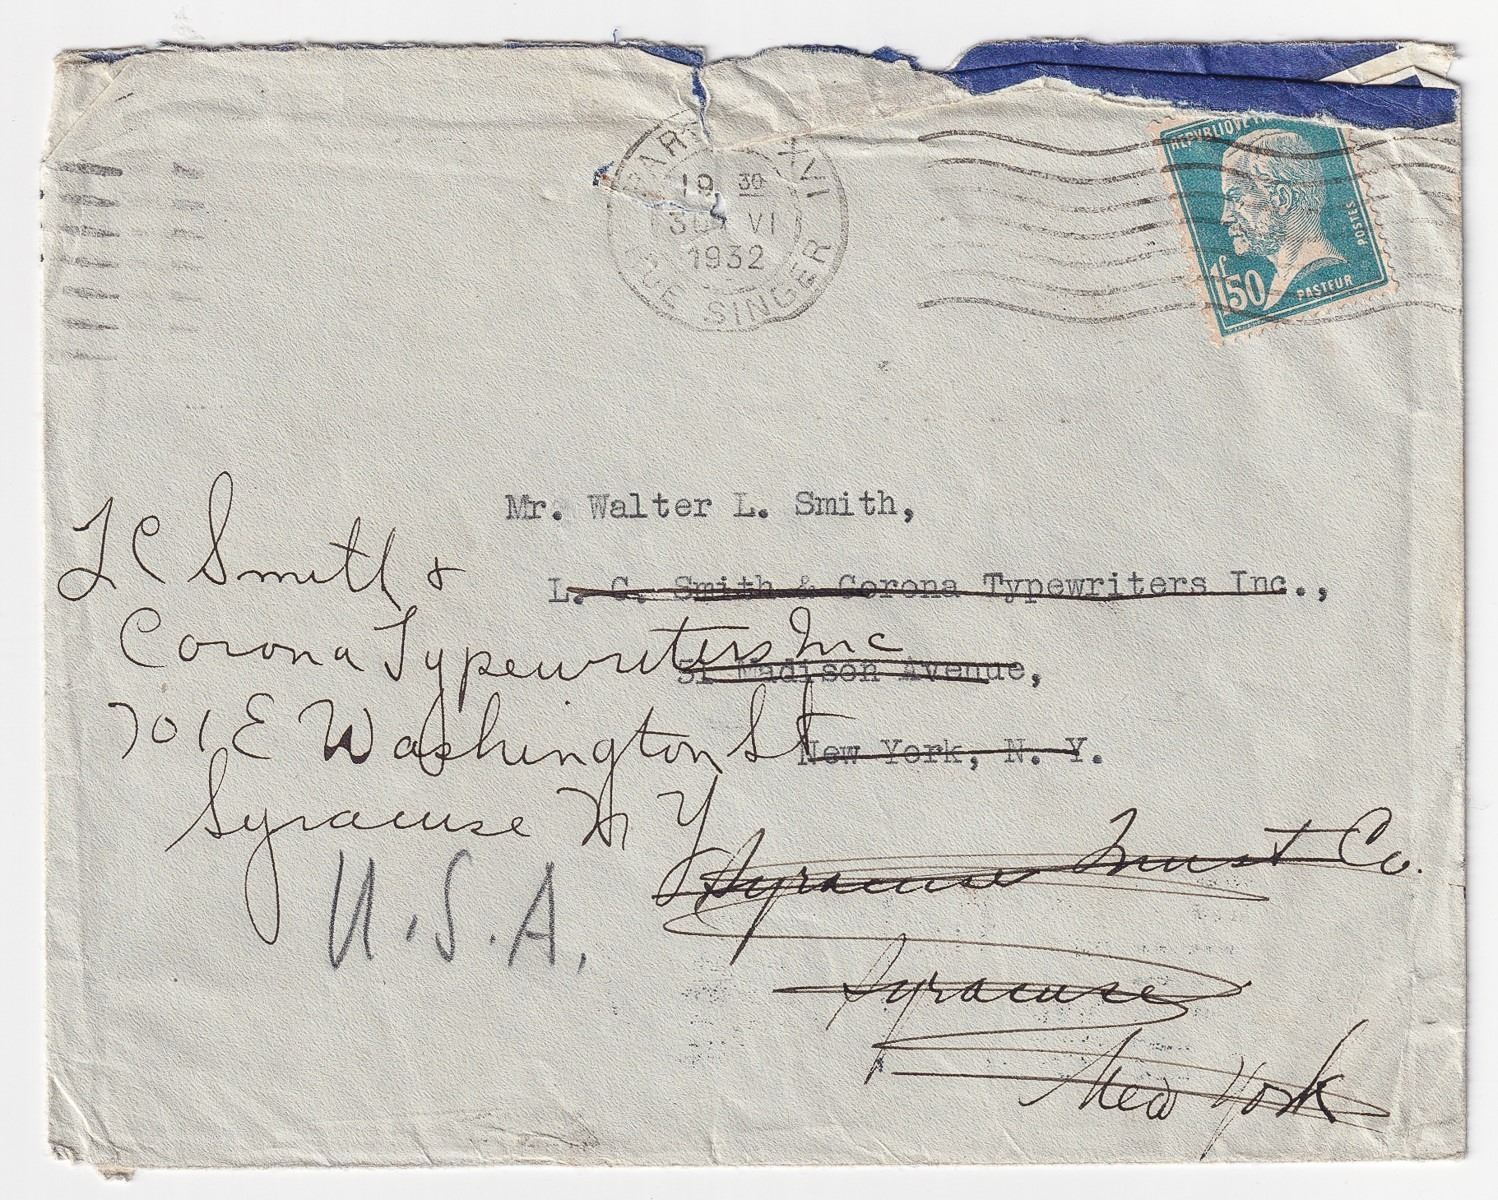 PARIS XVI
19 30
30 VI
1932
RUE SINGER
REPUBLIQUE
POSTES
1F50
PASTEUR
Mr. Walter L. Smith,
L. C. Smith & Corona Typewriters Inc.,
31 Madison Avenue,
New York, N. Y.
L C Smith &
Corona Typewriters Inc
701 E Washington St
Syracuse N Y
U.S.A.
Syracuse Trust Co.
Syracuse
New York